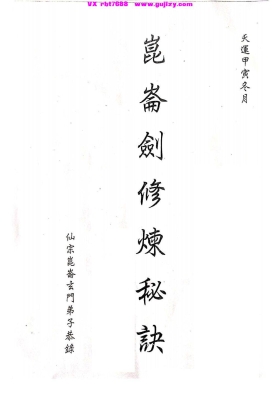 VX rbt7688  www.gujizy.com
天運甲寅冬月
崑崙劍修煉秘訣
仙宗崑崙玄門弟子恭錄